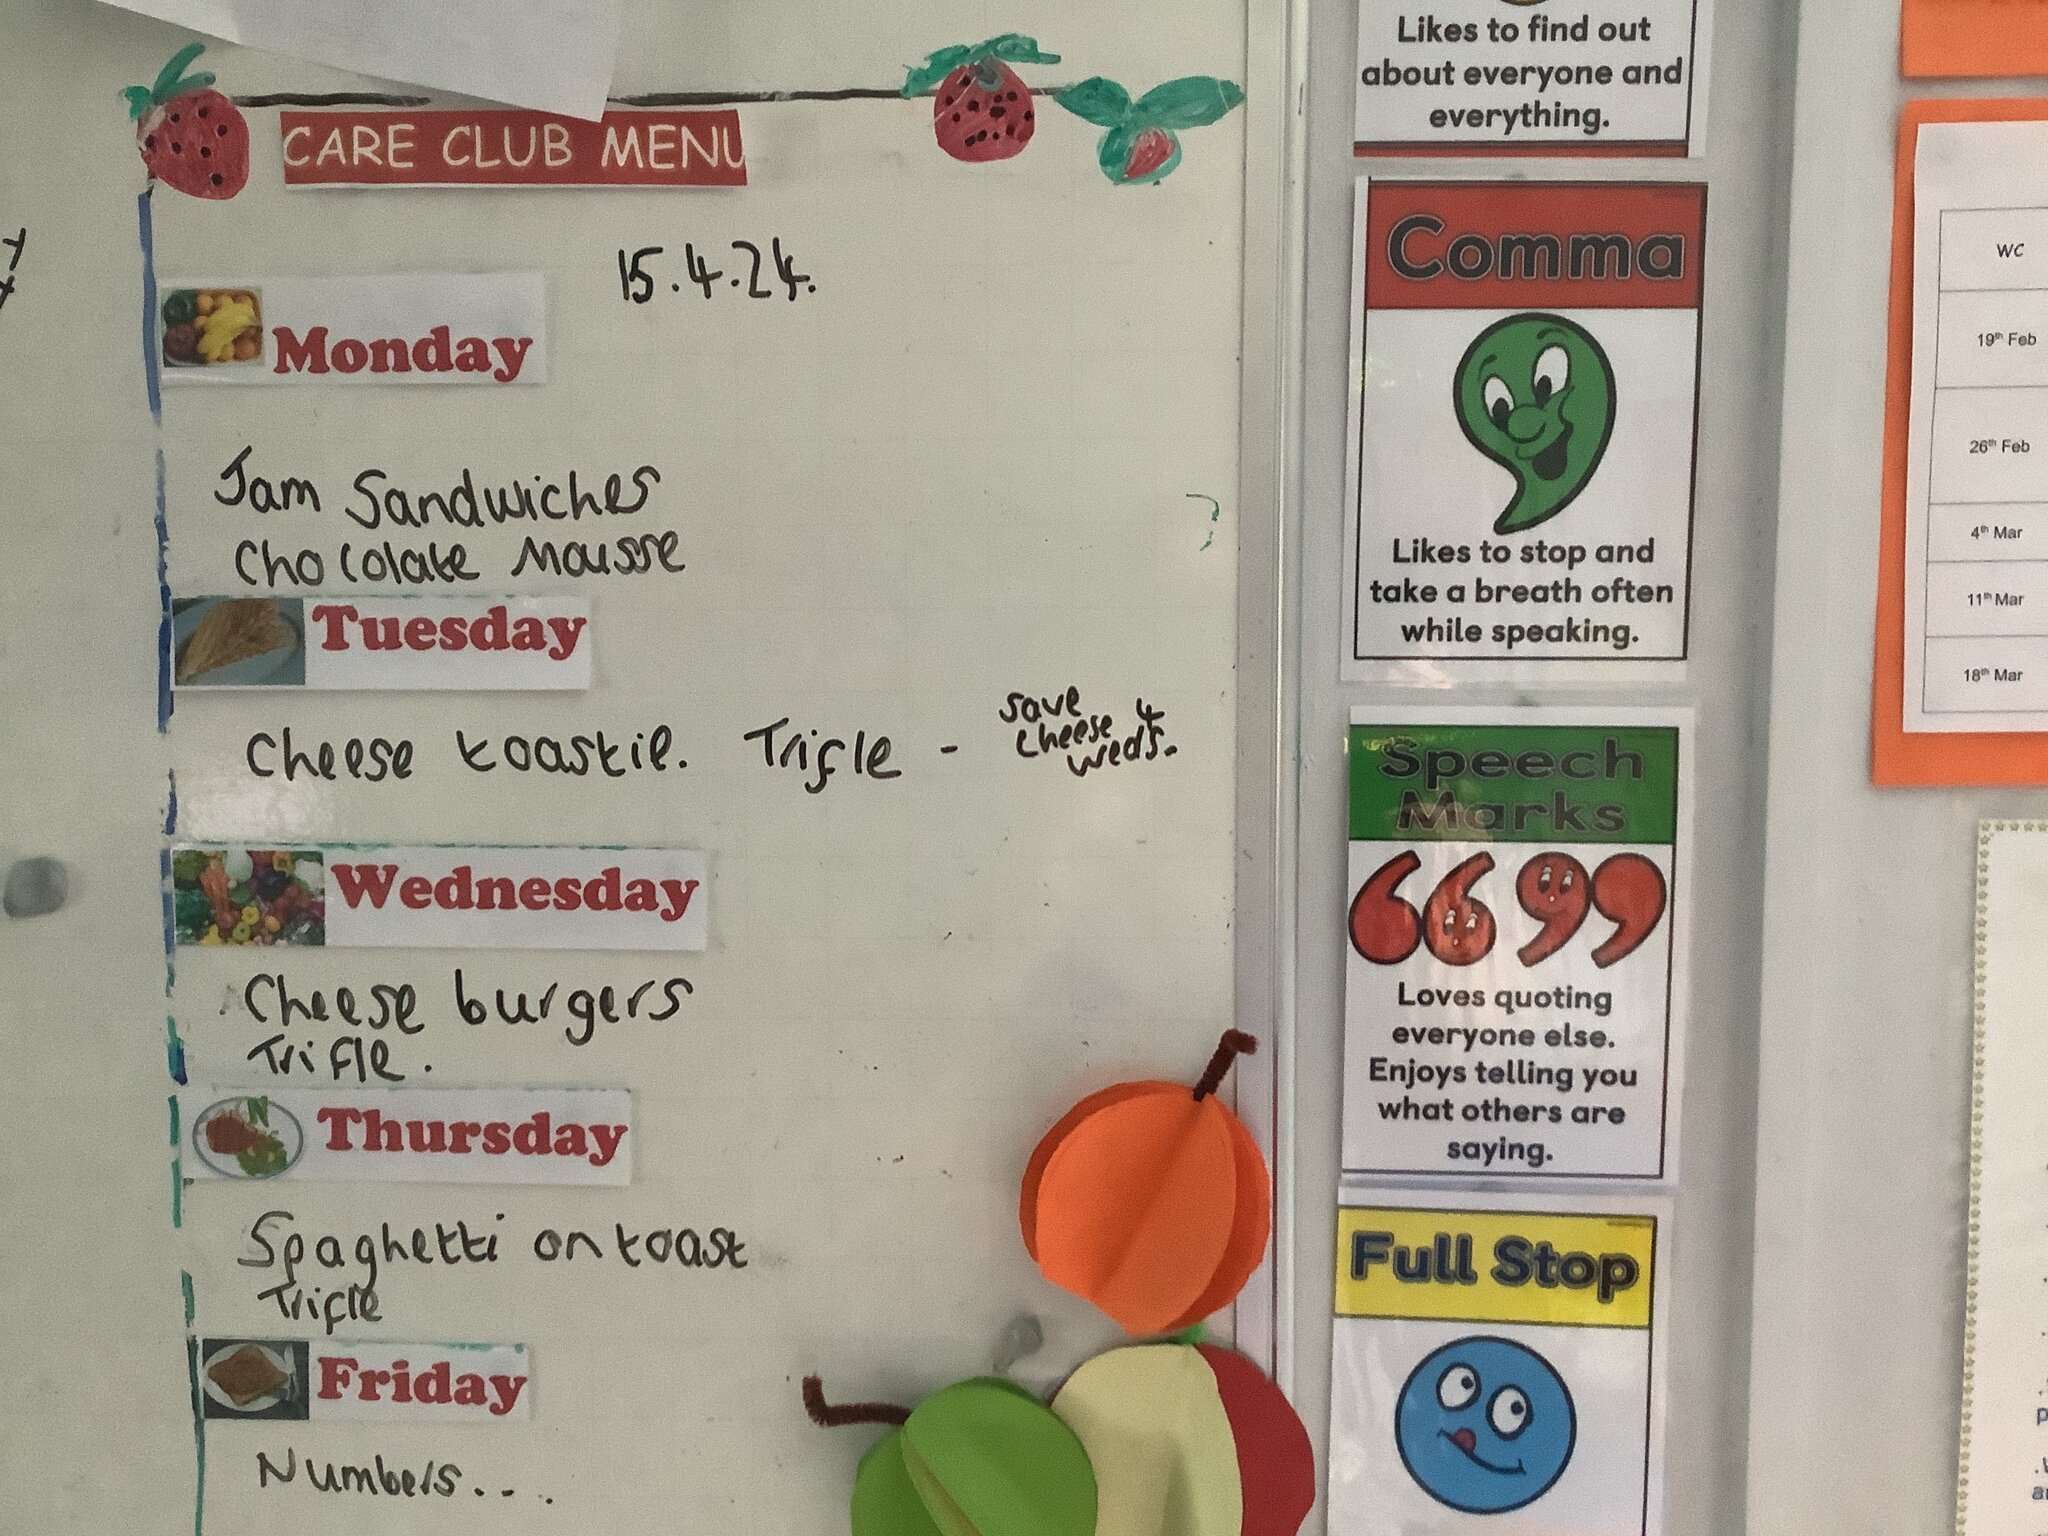 CARE CLUB MENU
15.4.24.
Monday
Jam Sandwiches
Chocolate Mousse
Tuesday
Cheese toastie. Trifle - save
cheese 4
weds.
Wednesday
Cheese burgers
Trifle.
Thursday
Spaghetti on toast
Trifle
Friday
Numbers...
Likes to find out
about everyone and
everything.
Comma
Likes to stop and
take a breath often
while speaking.
Speech
Marks
66 99
Loves quoting
everyone else.
Enjoys telling you
what others are
saying.
Full Stop
WC
19th Feb
26th Feb
4th Mar
11th Mar
18th Mar